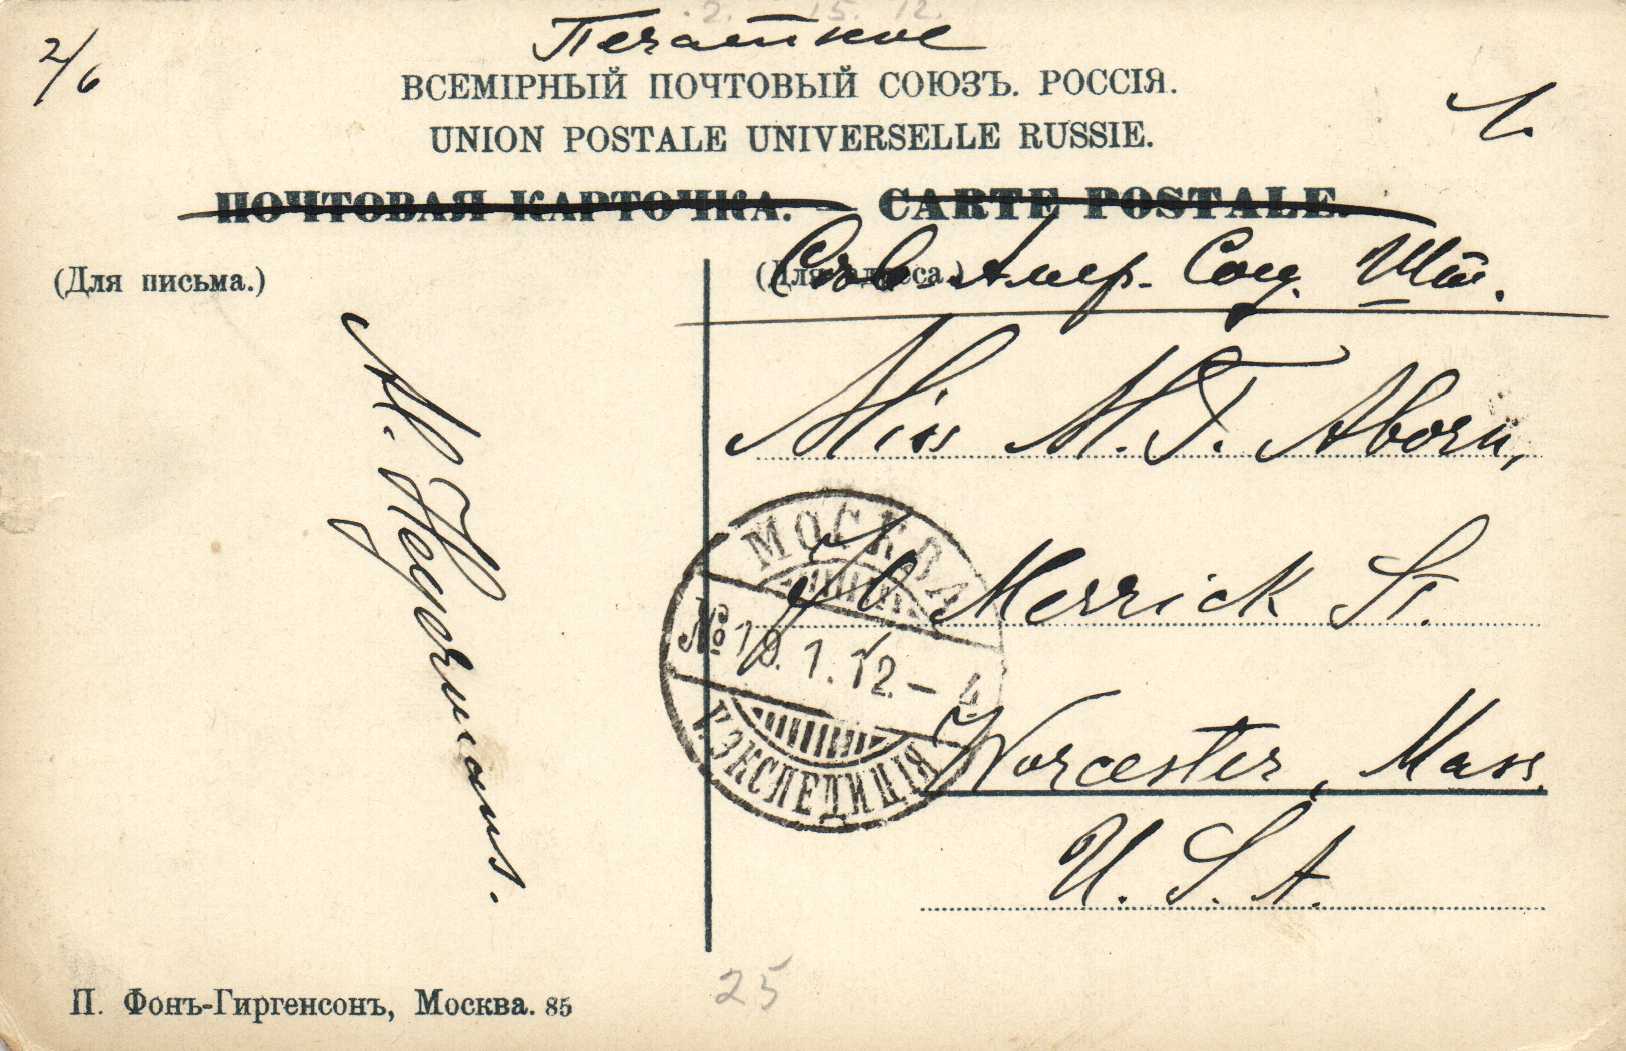 2. 15. 12.
2/6
Печатное
ВСЕМІРНЫЙ ПОЧТОВЫЙ СОЮЗЪ. РОССІЯ.
UNION POSTALE UNIVERSELLE RUSSIE.
1.
ПОЧТОВАЯ КАРТОЧКА. — CARTE POSTALE.
(Для письма.)
(Для адреса.)
Сѣв.-Амер. Соед. Шт.
Miss M. T. Aborn,
Merrick St.
Worcester, Mass.
U. S. A.
МОСКВА
№ 19.1.12 - 4
ЭКСПЕДИЦІЯ
25
П. Фонъ-Гиргенсонъ, Москва. 85